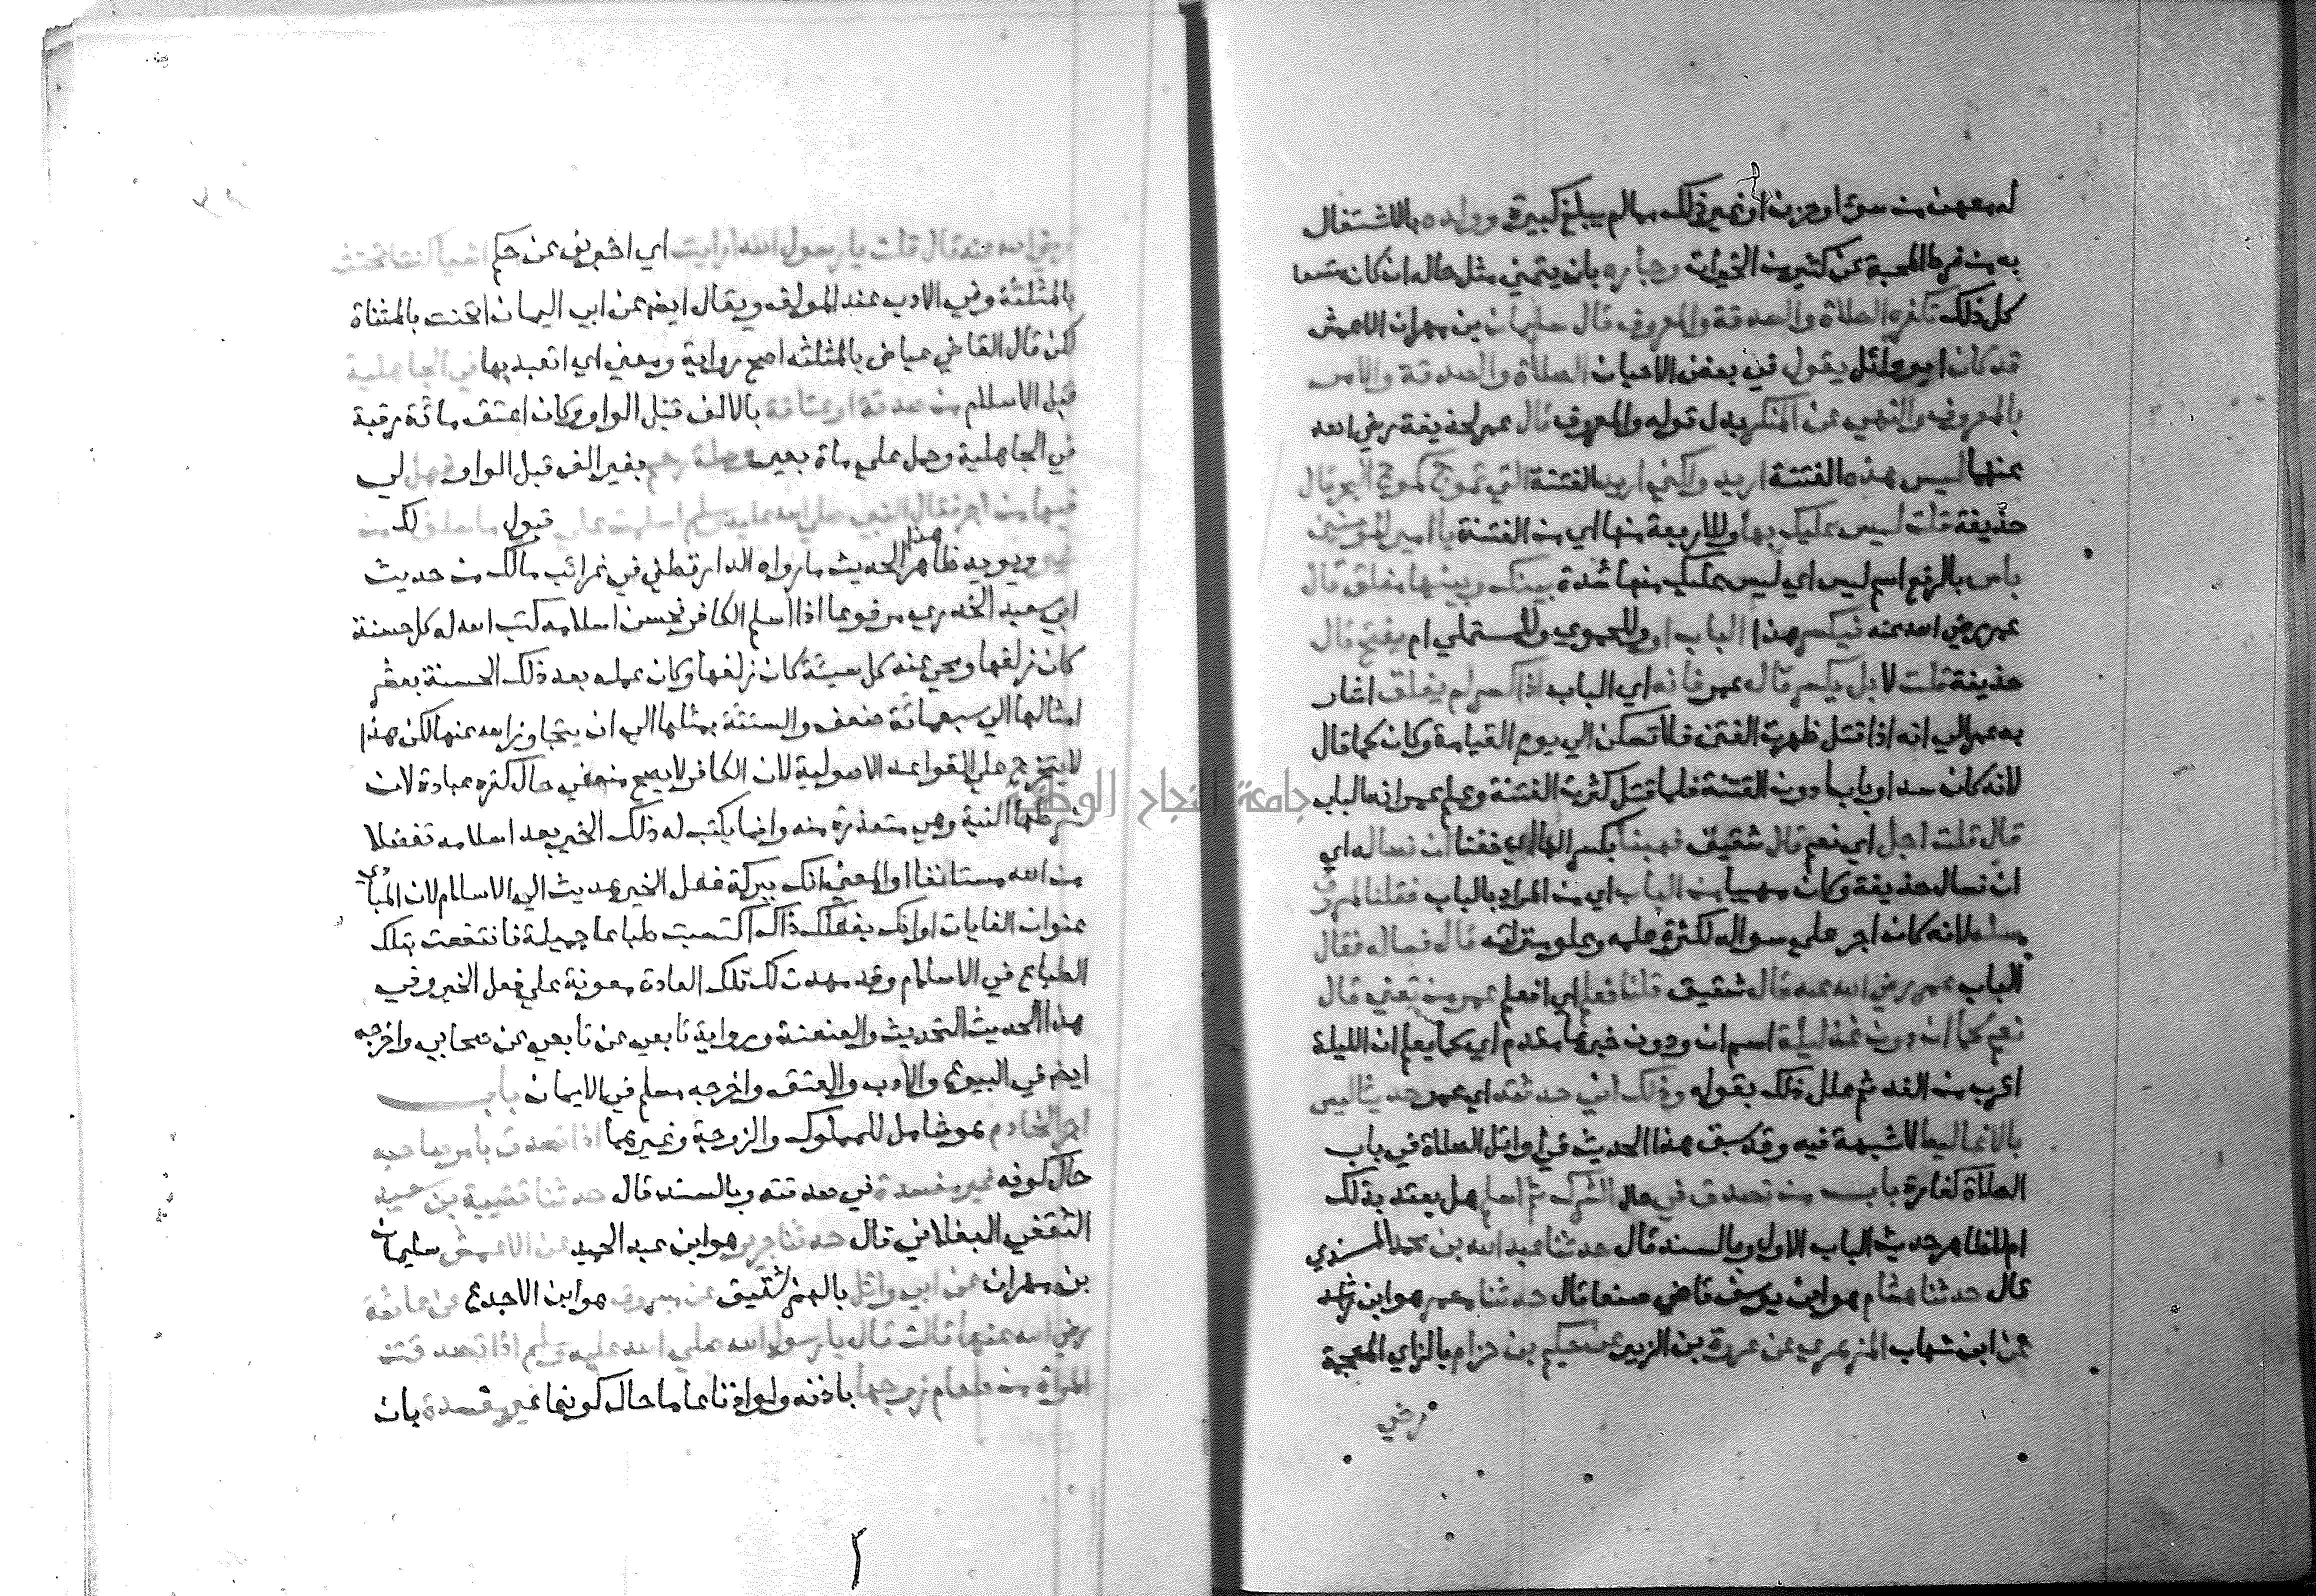 له معهن من سوء او حزن او غير ذلك مما لم يبلغ كبيرة وولده بالاشتغال
به من فرط المحبة عن كثير من الخيرات وجاره بان يتمني مثل حاله ان كان متسعا
كل ذلك تكفره الصلاة والصدقة والمعروف قال سليمان بن مهران الاعمش
قد كان ابو وائل يقول في بعض الاحيان الصلاة والصدقة والامر
بالمعروف والنهي عن المنكر بدل قوله والمعروف قال عمر لحذيفة رضي الله
عنهما ليس هذه الفتنة اريد ولكني اريد الفتنة التي تموج كموج البحر قال
حذيفة قلت ليس عليك بها وللاربعة منها اي من الفتنة يا امير المومنين
باس بالرفع اسم ليس اي ليس عليك منها شدة بينك وبينها مغلق قال
عمر رضي الله عنه فيكسر هذا الباب او وللحموي والمستملي ام يفتح قال
حذيفة قلت لا بل يكسر قال عمر فانه اي الباب اذا كسر لم يغلق اشار
به عمر الي انه اذا قتل ظهرت الفتن فلا تسكن الي يوم القيامة وكان كما قال
لانه كان سدا وبابا دون الفتنة فلما قتل كثرت الفتنة وعلم عمر انه الباب
قال قلت اجل اي نعم قال شقيق فهبنا بكسر الهاء اي خفنا ان نساله اي
ان نسال حذيفة وكان مهيبا من الباب اي من المراد بالباب فقلنا لمسروق
سله لانه كان اجر علي سواله لكثرة علمه وعلو منزلته قال فساله فقال
الباب عمر رضي الله عنه قال شقيق قلنا فعلم اي افعلم عمر من تعني قال
نعم كما ان دون غد ليلة اسم ان ودون خبرها مقدم اي كما يعلم ان الليلة
اقرب من الغد ثم علل ذلك بقوله وذلك اني حدثته اي عمر حديثا ليس
بالاغاليط لا شبهة فيه وقد سبق هذا الحديث في اوائل الصلاة في باب
الصلاة كفارة باب من تصدق في حال الشرك ثم اسلم هل يعتد بذلك
ام لا ظاهر حديث الباب الاول وبالسند قال حدثنا عبد الله بن محمد المسندي
قال حدثنا هشام هو ابن يوسف قاضي صنعا قال حدثنا معمر هو ابن راشد
عن ابن شهاب الزهري عن عروة بن الزبير عن حكيم بن حزام بالزاي المعجمة
رضي
رضي الله عنه قال قلت يا رسول الله ارايت اي اخبرني عن حكم اشيا كنت اتحنث
بالمثلثة وفي الادب عند المولف ويقال ايضا عن ابي اليمان اتحنت بالمثناة
لكن قال القاضي عياض بالمثلثه اصح رواية ومعني اي اتعبد بها في الجاهلية
قبل الاسلام من صدقة او عتاقة بالالف قبل الواو وكان اعتق مائة رقبة
في الجاهلية وحمل علي ماة بعير وصلة رحم بغير الف قبل الواو فهل لي
فيها من اجر فقال النبي صلي الله عليه وسلم اسلمت علي قبول ما سلف لك من
خير ويويد ظاهر هذا الحديث ما رواه الدارقطني في غرائب مالك من حديث
ابي سعيد الخدري مرفوعا اذا اسلم الكافر فحسن اسلامه كتب الله له كل حسنة
كان زلفها ومحي عنه كل سيئة كان زلفها وكان عمله بعد ذلك الحسنة بعشر
امثالها الي سبعمائة ضعف والسئة بمثلها الي ان يتجاوز الله عنها لكن هذا
لا يتخرج علي القواعد الاصولية لان الكافر لا يصح منه في حال كفره عبادة لان
شرطها النية وهي متعذرة منه وانما يكتب له ذلك الخير بعد اسلامه تفضلا
من الله مستانفا او المعني انك ببركة فعل الخير هديت الي الاسلام لان المبادي
عنوان الغايات او انك بفعلك ذاك اكتسبت طباعا جميلة فانتفعت بتلك
الطباع في الاسلام وقد مهدت لك تلك العادة معونة علي فعل الخير وفي
هذا الحديث التحديث والعنعنة ورواية تابعي عن تابعي عن صحابي واخرجه
ايضا في البيوع والادب والعتق واخرجه مسلم في الايمان باب
اجر الخادم هو شامل للمملوك والزوجة وغيرهما اذا تصدق بامر صاحبه
حال كونه غير مفسد في صدقته وبالسند قال حدثنا قتيبة بن سعيد
الثقفي البغلاني قال حدثنا جرير هو ابن عبد الحميد عن الاعمش سليمان
بن مهران عن ابي وائل بالهمز شقيق عن مسروق هو ابن الاجدع عن عائشة
رضي الله عنها قالت قال رسول الله صلي الله عليه وسلم اذا تصدقت
المراة من طعام زوجها باذنه ولو اذنا عاما حال كونها غير مفسدة بان
جامعة النجاح الوطنية